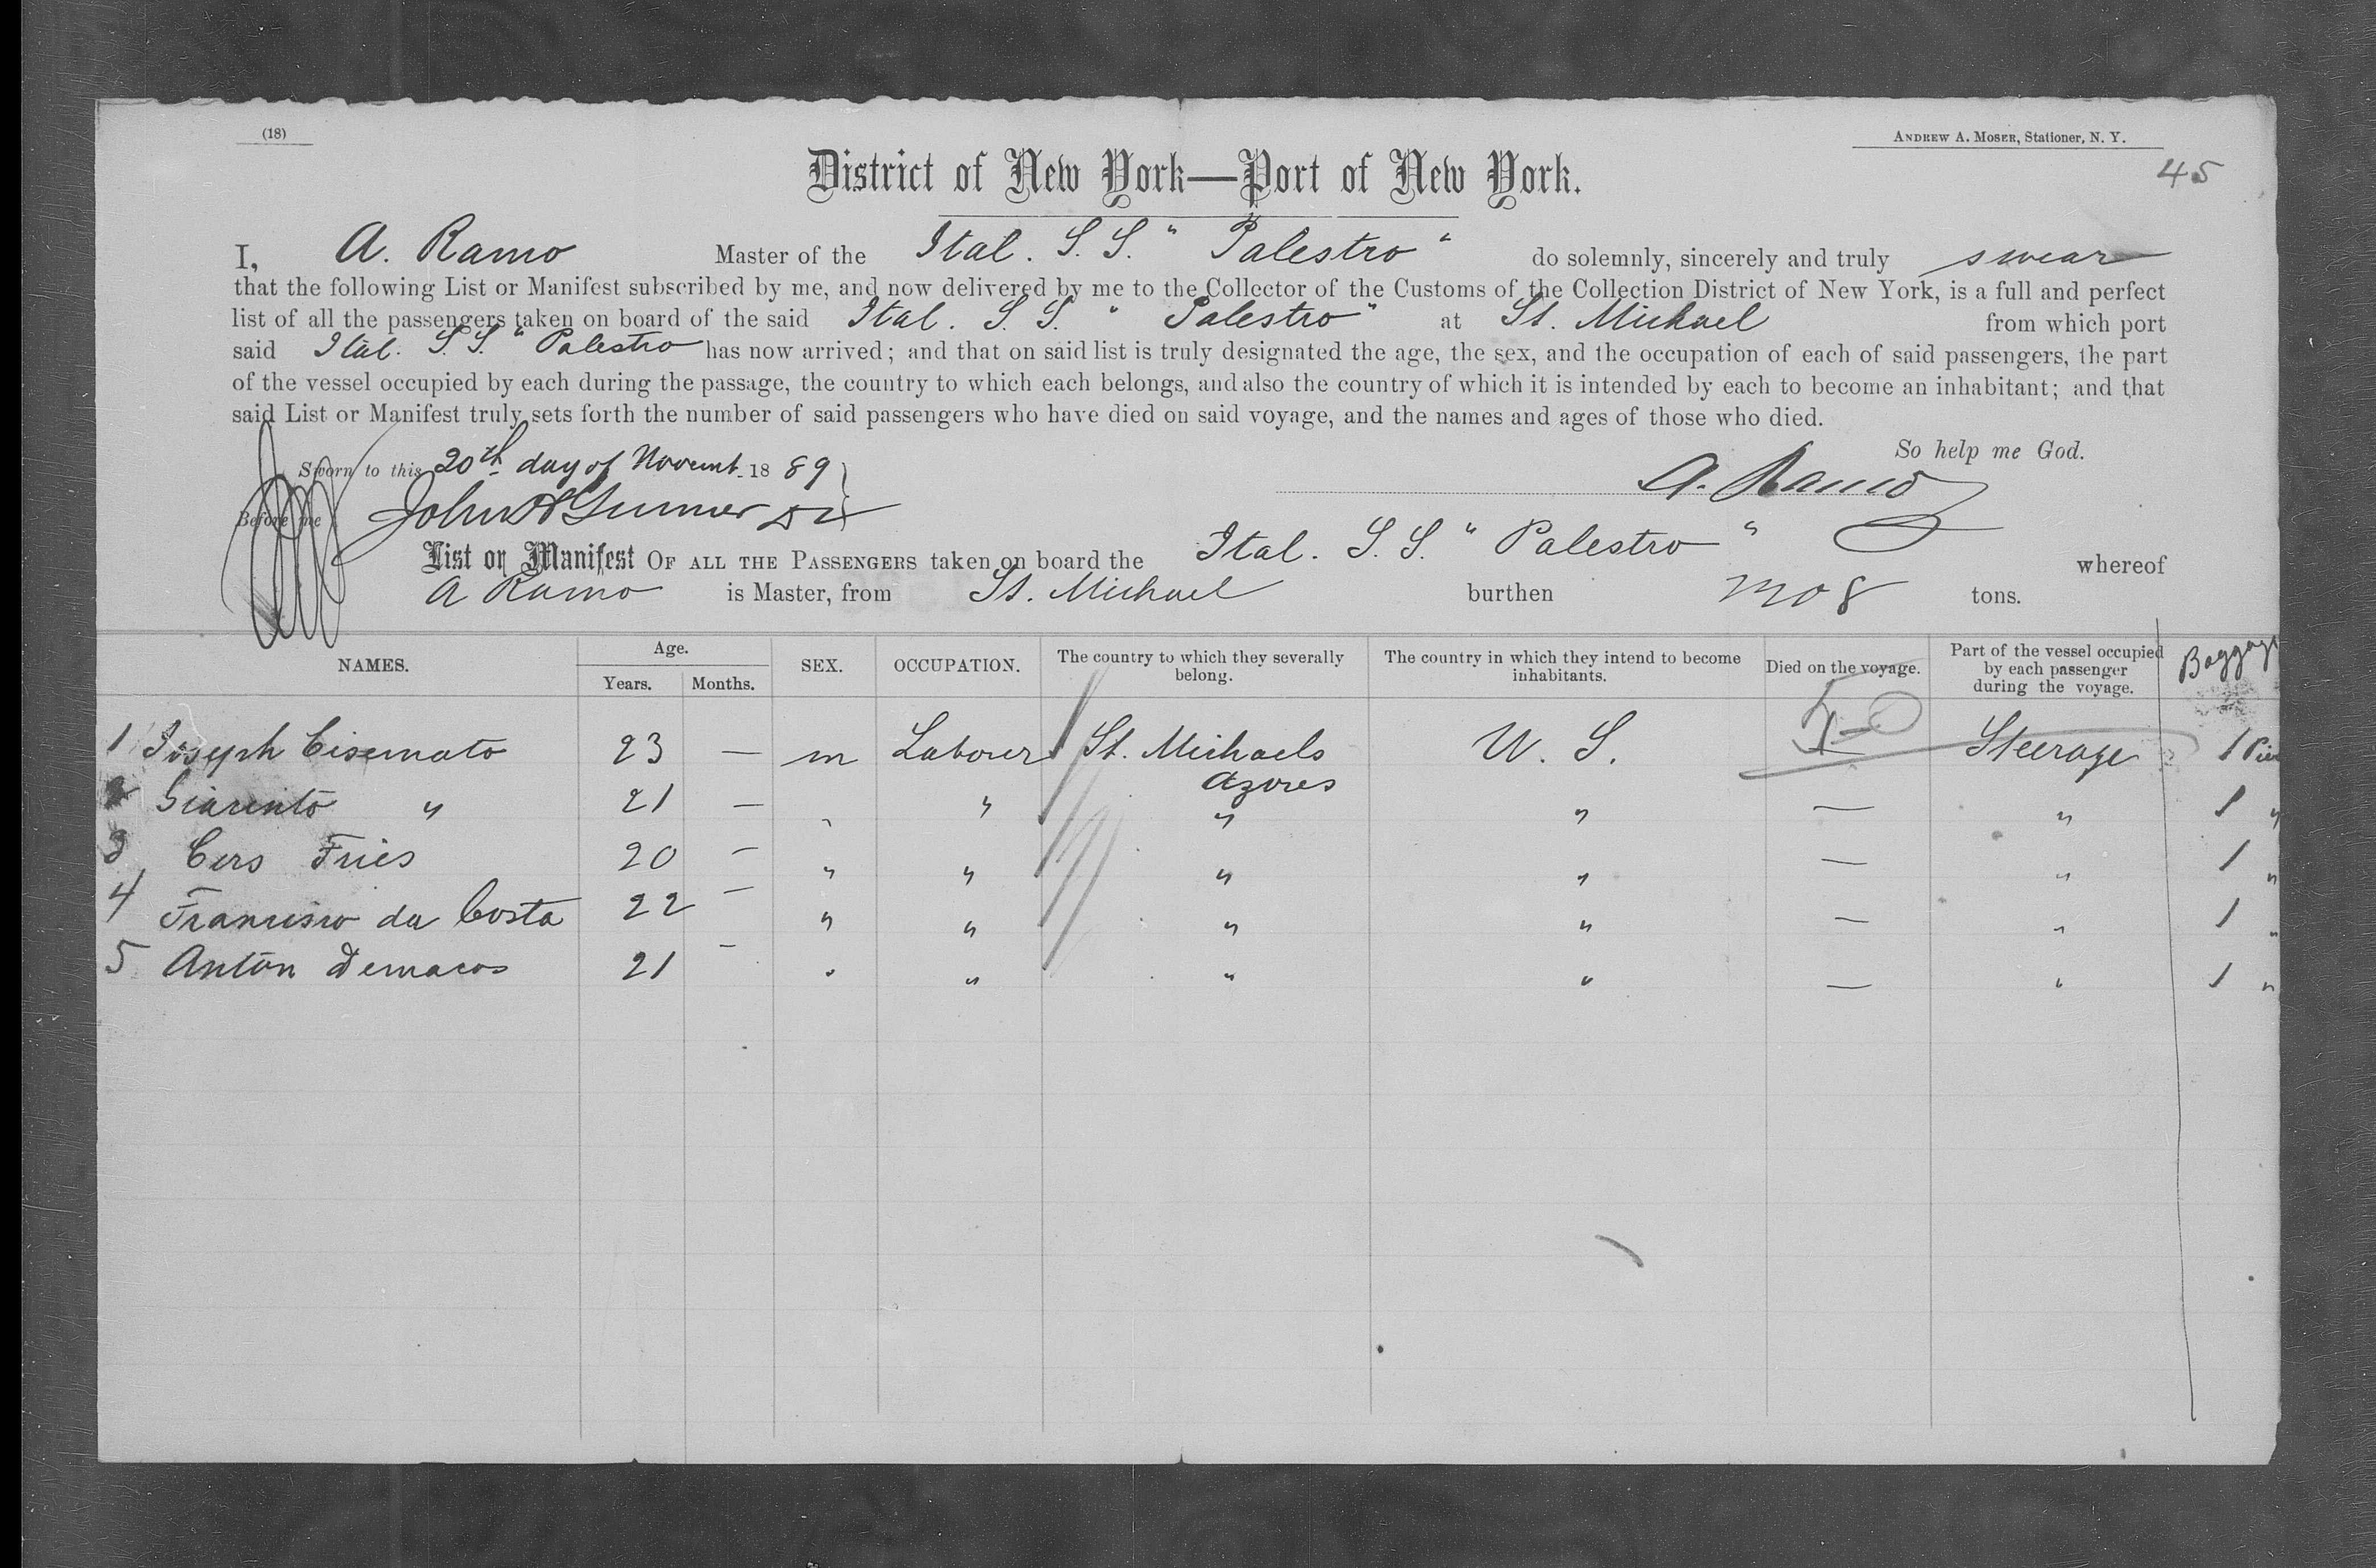 (18)
ANDREW A. MOSER, Stationer, N. Y.
45
District of New York—Port of New York.
I, A. Ramo Master of the Ital. S. S. "Palestro" do solemnly, sincerely and truly swear
that the following List or Manifest subscribed by me, and now delivered by me to the Collector of the Customs of the Collection District of New York, is a full and perfect
list of all the passengers taken on board of the said Ital. S. S. "Palestro" at St. Michael from which port
said Ital. S. S. "Palestro has now arrived; and that on said list is truly designated the age, the sex, and the occupation of each of said passengers, the part
of the vessel occupied by each during the passage, the country to which each belongs, and also the country of which it is intended by each to become an inhabitant; and that
said List or Manifest truly sets forth the number of said passengers who have died on said voyage, and the names and ages of those who died.
So help me God.
Sworn to this 20th day of Novemb. 1889
A. Ramo
Before me John
List or Manifest OF ALL THE PASSENGERS taken on board the Ital. S. S. "Palestro" whereof
A Ramo is Master, from St. Michael burthen tons.
NAMES. Age. Years. Months. SEX. OCCUPATION. The country to which they severally belong. The country in which they intend to become inhabitants. Died on the voyage. Part of the vessel occupied by each passenger during the voyage. Baggage
1 Joseph 23 — m Laborer St. Michaels Azores U. S. — Steerage 1
2 " 21 — " " " " — " 1 "
3 Cers Fries 20 — " " " " — " 1 "
4 Francisco da Costa 22 — " " " " — " 1 "
5 Anton Demacos 21 — " " " " — " 1 "